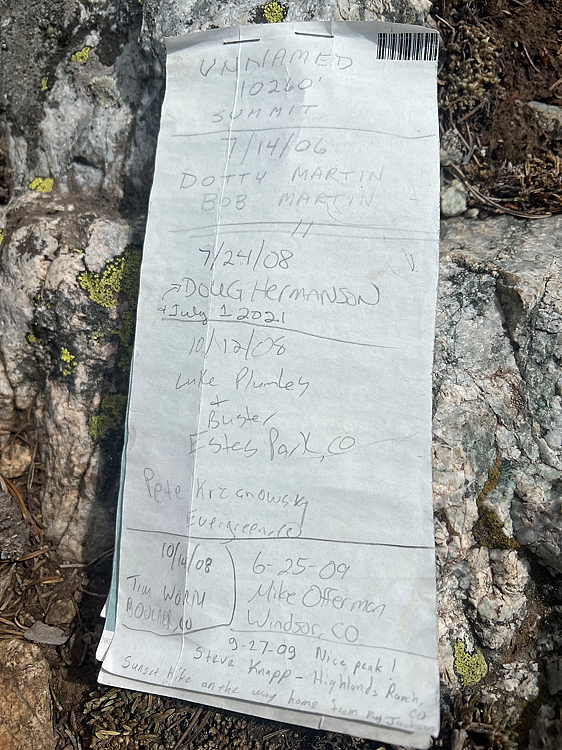 UNNAMED
10260'
SUMMIT
7/14/06
DOTTY MARTIN
BOB MARTIN
7/24/08
→DOUG HERMANSON
+ July 1 2021
10/12/08
Luke Plumley
+
Buster
Estes Park, CO
Pete Krzanowsky
Evergreen, CO
10/14/08
TIM WORTH
BOULDER, CO
6-25-09
Mike Offerman
Windsor, CO
9-27-09 Nice peak!
Steve Knapp - Highlands Ranch, CO
Sunset hike on the way home from